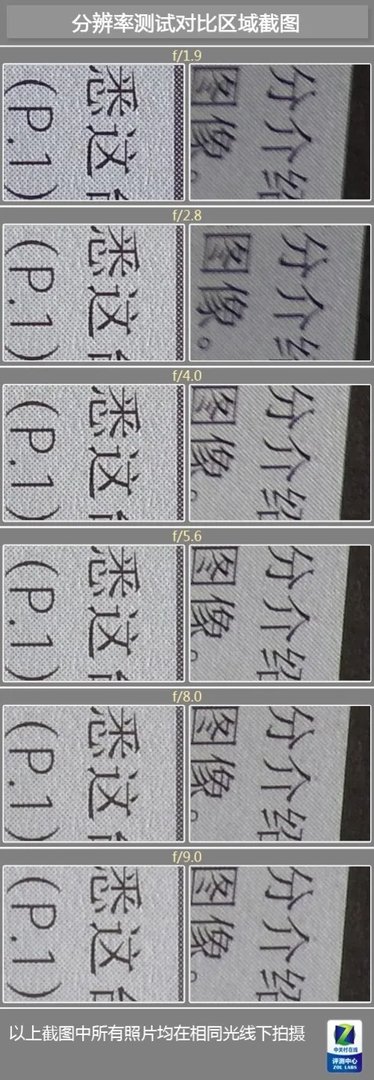 分辨率测试对比区域截图
f/1.9
悉这
(P.1)
分介绍
图像。
f/2.8
悉这
(P.1)
分介绍
图像。
f/4.0
悉这
(P.1)
分介绍
图像。
f/5.6
悉这
(P.1)
分介绍
图像。
f/8.0
悉这
(P.1)
分介绍
图像。
f/9.0
悉这
(P.1)
分介绍
图像。
以上截图中所有照片均在相同光线下拍摄
Z
中关村在线
评测中心
ZOL LABS